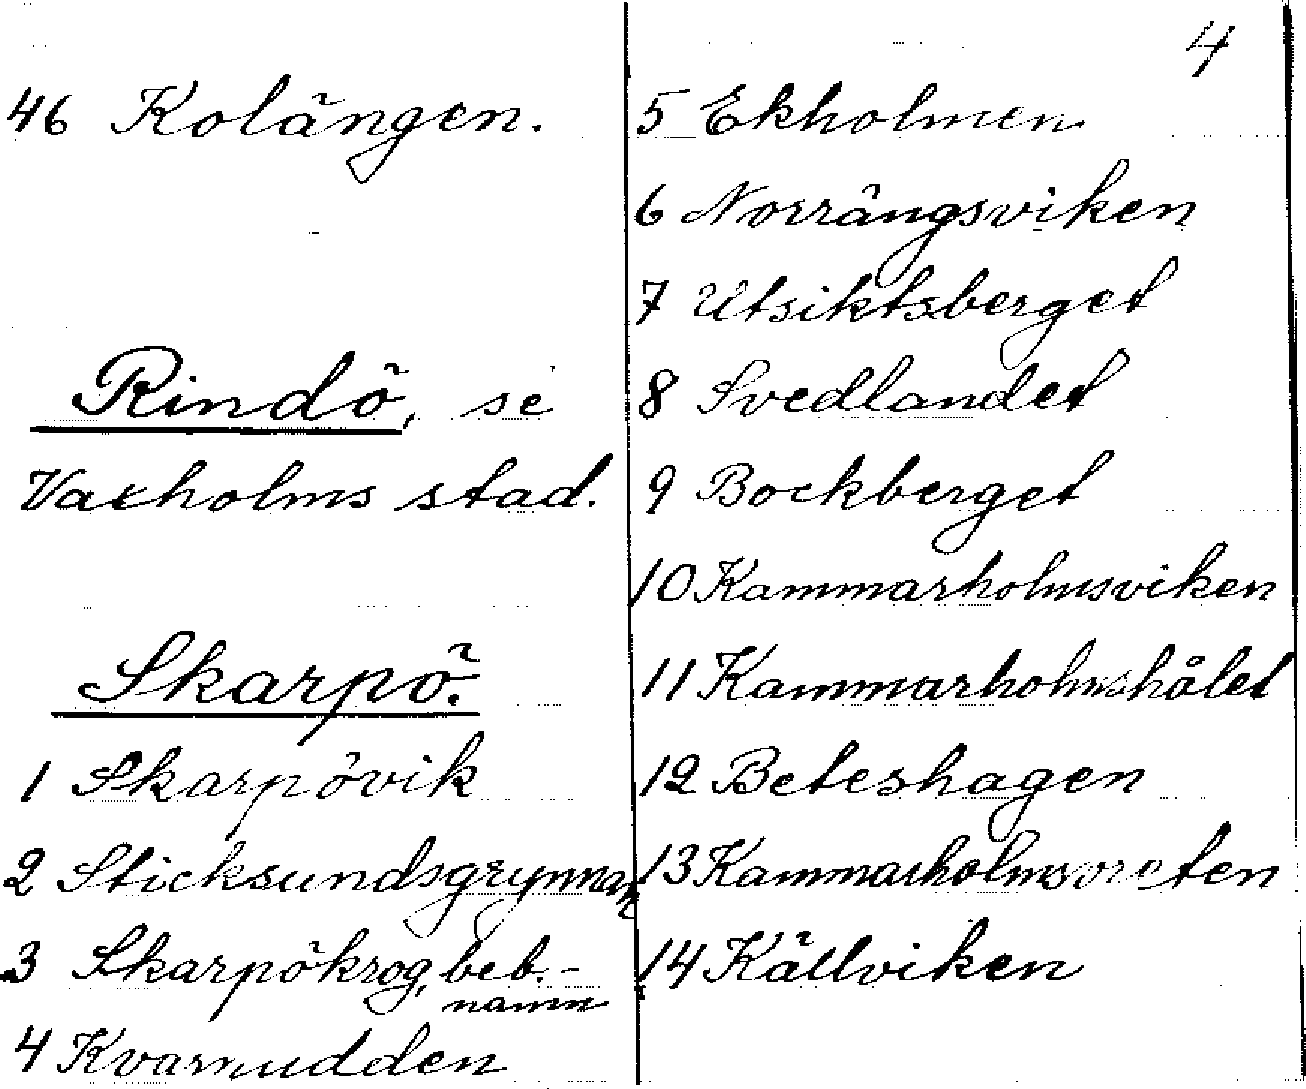 46 Kolängen.
Rindö, se
Vaxholms stad.
Skarpö.
1 Skarpövik
2 Sticksundsgrynnan
3 Skarpökrog, beb.-
namn
4 Kvarnudden
4
5 Ekholmen
6 Norrängsviken
7 Utsiktsberget
8 Svedlandet
9 Bockberget
10 Kammarholmsviken
11 Kammarholmshålet
12 Beteshagen
13 Kammarholmsvreten
14 Källviken